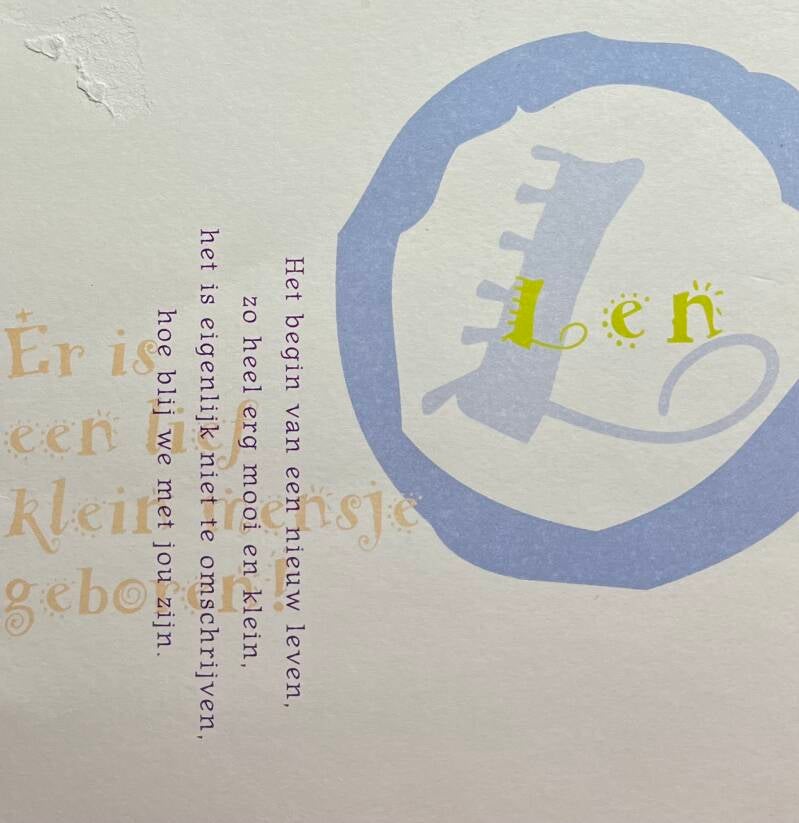 Len
Er is
een lief
klein mensje
geboren!
Het begin van een nieuw leven,
zo heel erg mooi en klein,
het is eigenlijk niet te omschrijven,
hoe blij we met jou zijn.